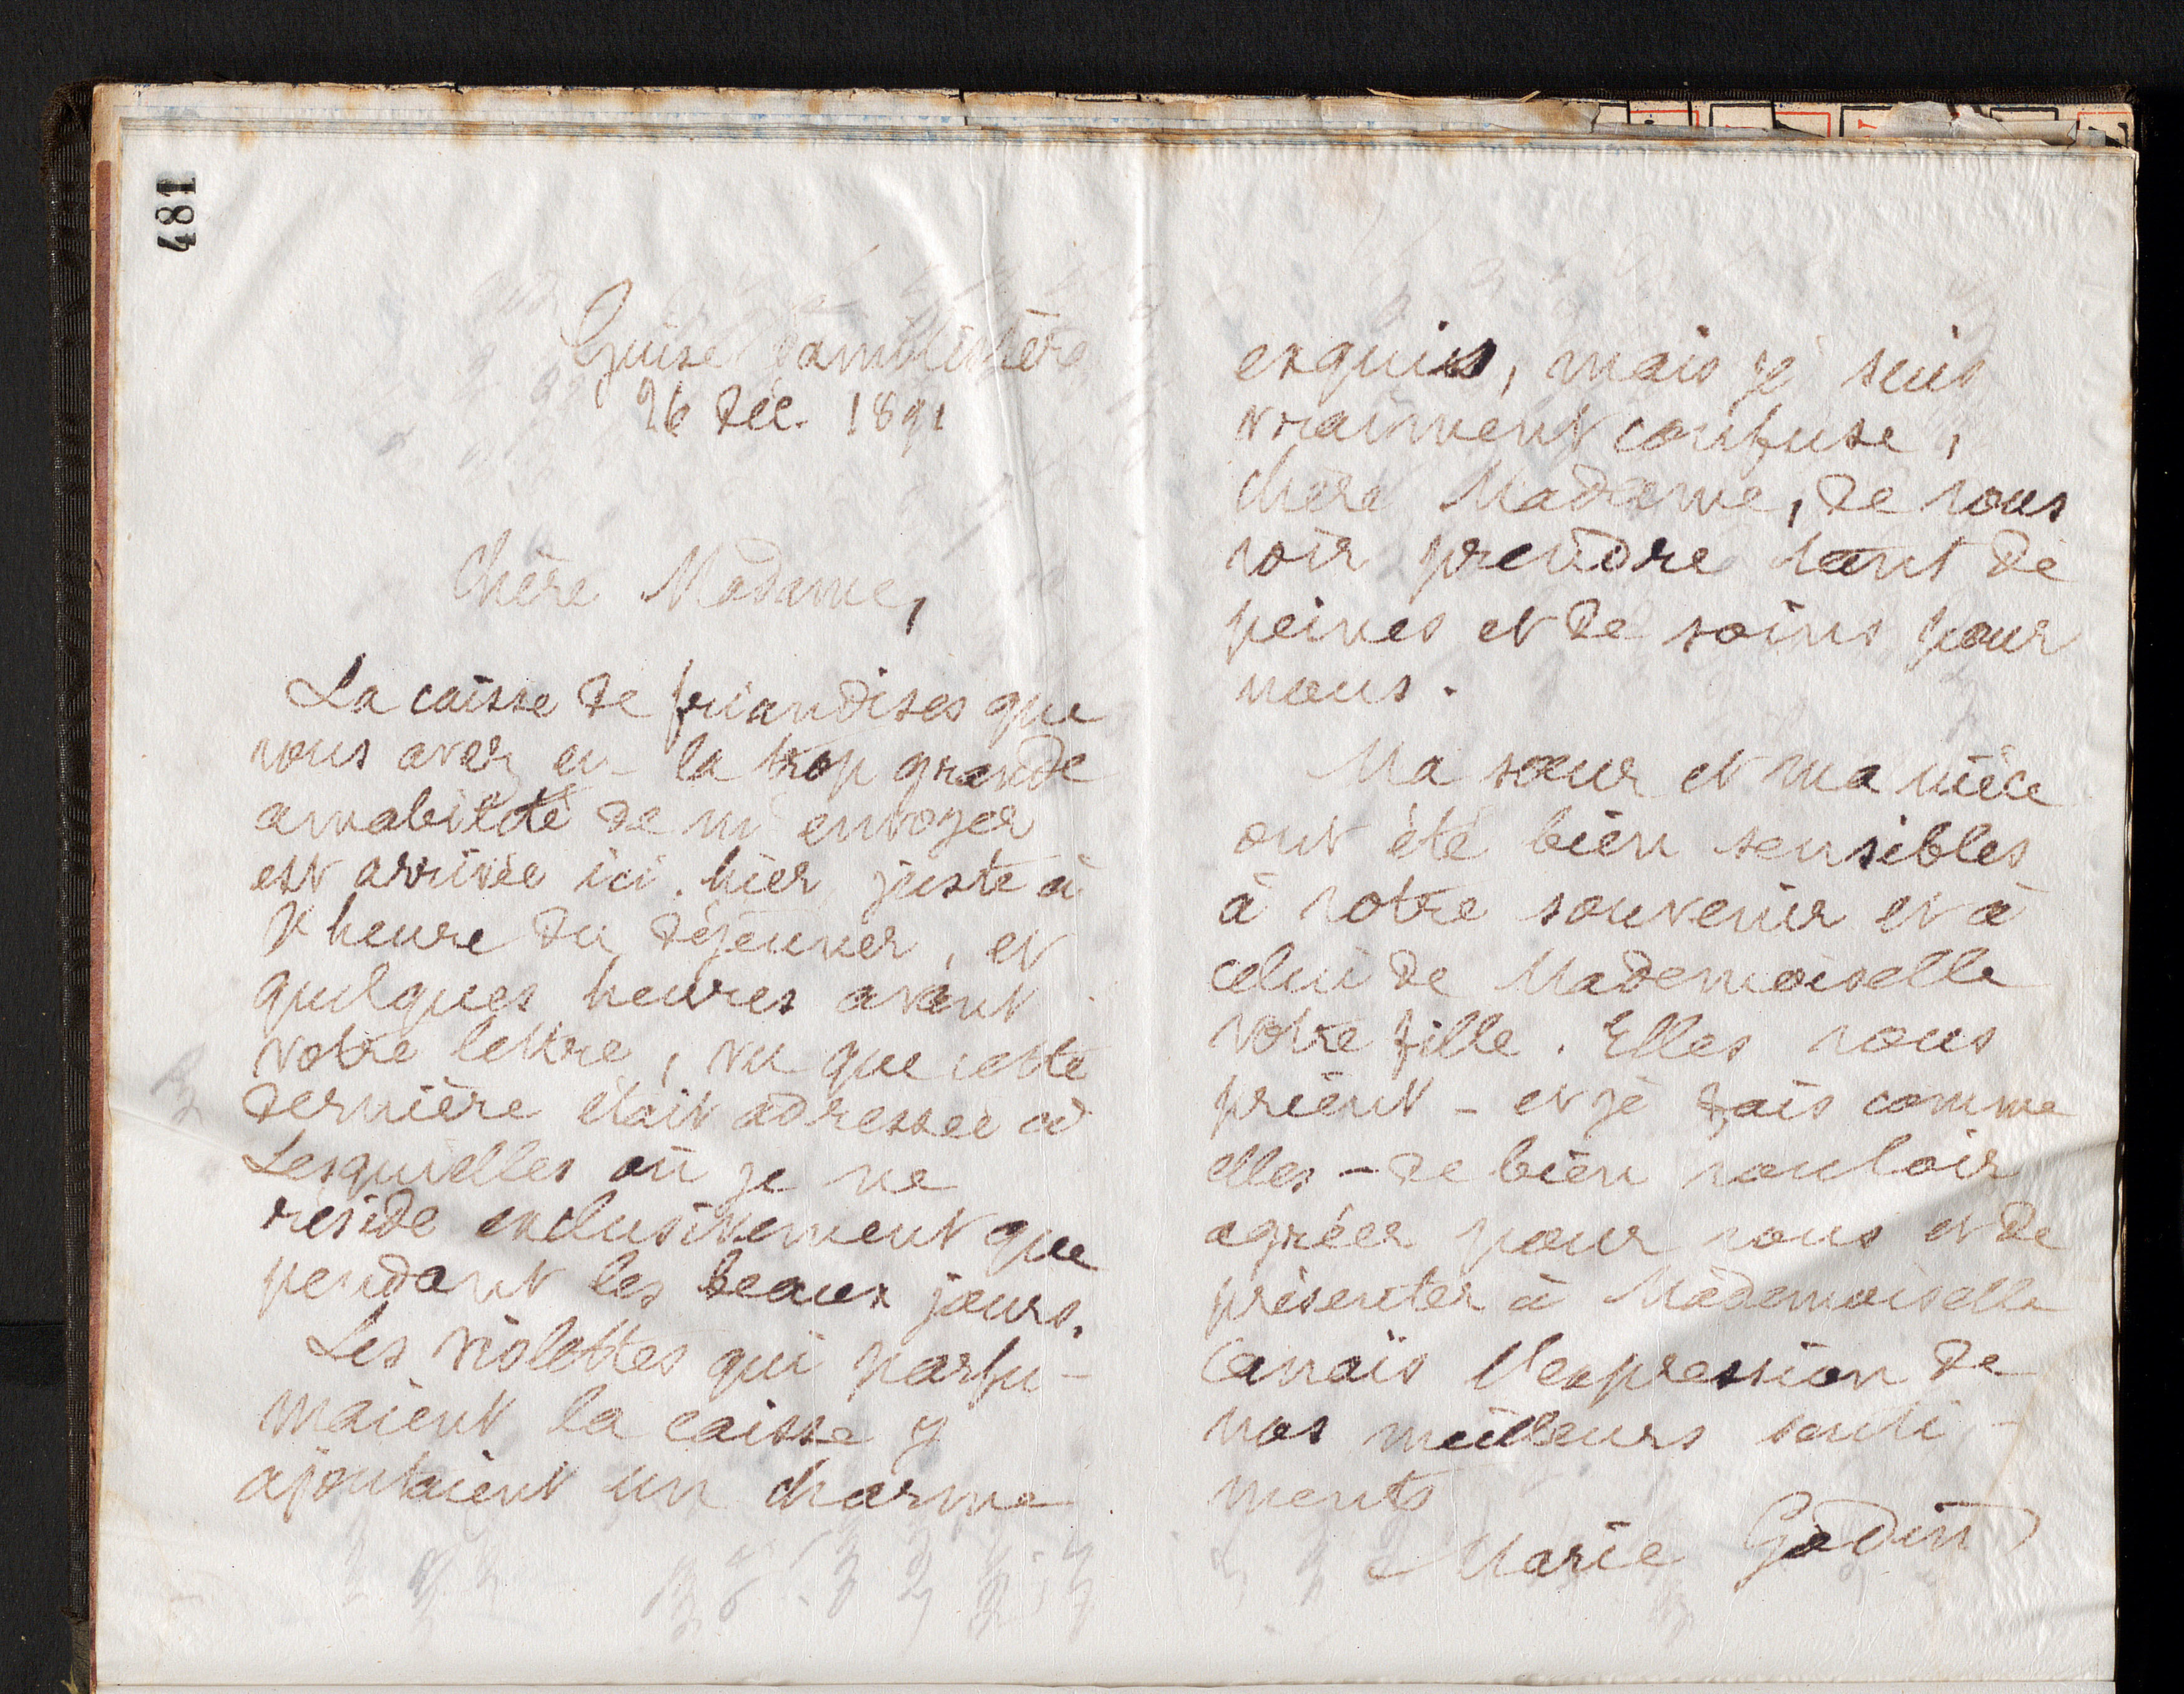 481
Guise Familistère
26 Déc. 1891
Chère Madame,
La caisse de friandises que
vous avez eu la trop grande
amabilité de m'envoyer
est arrivée ici hier juste à
l'heure du déjeuner, et
quelques heures avant
votre lettre, vu que cette
dernière était adressée à
Lesquielles où je ne
réside exclusivement que
pendant les beaux jours.
Les violettes qui parfu-
maient la caisse y
ajoutaient un charme
exquis, mais je suis
vraiment confuse,
chère Madame, de vous
voir prendre tant de
peines et de soins pour
nous.
Ma sœur et ma nièce
ont été bien sensibles
à votre souvenir et à
celui de Mademoiselle
votre fille. Elles vous
prient - et je fais comme
elles - de bien vouloir
agréer pour vous et de
présenter à Mademoiselle
l'expression de
nos meilleurs senti-
ments
Marie Godin